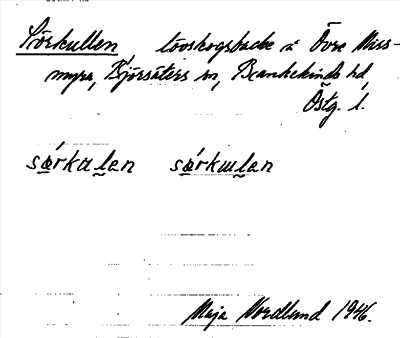 Sörkullen, lövskogsbacke i Övre Väss-
myra, Björsäters sn, Bankekinds hd,
Östg. l.
særkalen særkɯlen
Maja Nordlund 1946.